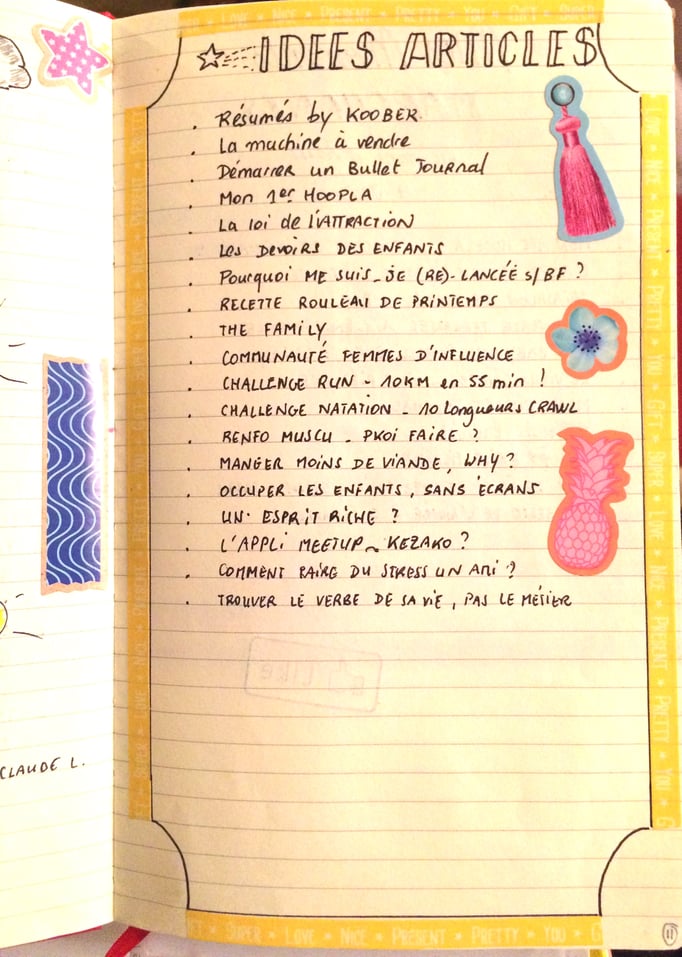 LOVE * NICE * PRESENT * PRETTY * YOU * GIFT * SUPER
IDEES ARTICLES
. Résumés by KOOBER
. La machine à vendre
. Démarrer un Bullet Journal
. Mon 1er HOOPLA
. La loi de l'ATTRACTION
. Les DEVOIRS DES ENFANTS
. Pourquoi ME SUIS-JE (RE)-LANCÉE s/ BF ?
. RECETTE ROULEAU DE PRINTEMPS
. THE FAMILY
. COMMUNAUTÉ FEMMES D'INFLUENCE
. CHALLENGE RUN - 10KM en 55 min !
. CHALLENGE NATATION - 10 Longueurs CRAWL
. RENFO MUSCU - PKOI FAIRE ?
. MANGER MOINS DE VIANDE, WHY ?
. OCCUPER LES ENFANTS, SANS ÉCRANS
. UN ESPRIT RICHE ?
. L'APPLI MEETUP ~ KEZAKO ?
. COMMENT FAIRE DU STRESS UN AMI ?
. TROUVER LE VERBE DE SA VIE, PAS LE MÉTIER
CLAUDE L.
LOVE * NICE * PRESENT * PRETTY * YOU * GIFT * SUPER * LOVE * NICE * PRESENT * PRETTY * YOU
SUPER * LOVE * NICE * PRESENT * PRETTY * YOU
11